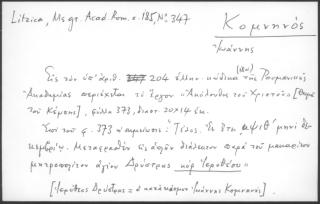 Litzica, Ms gr. Acad. Rom. σ. 185, No. 347
Κομνηνός
Ἰωάννης
Εἰς τὸν ὑπ' ἀριθ. 204 ἑλλην. κώδικα τῆς Ρουμανικῆς
Ἀκαδημίας περιέχεται τὸ ἔργον "Ἀκόλουθος τοῦ Χριστοῦ" [Θωμᾶ
τοῦ Κέμπης], φύλλα 373, διαστ. 20×14 ἑκ.
Ὑπὸ τοῦ φ. 373 ἡ σημείωσις: "Τέλος. Ἐν ἔτει αψιθ' μηνὶ δε
κεμβρίῳ. Μετεφρασθὲν εἰς ἁπλῆν διάλεκτον παρὰ τοῦ μακαρίτου
μητροπολίτου ἁγίου Δρύστρας κὺρ Ἱεροθέου"
[Ἱερόθεος Δρύστρας = ὁ κατὰ κόσμον Ἰωάννης Κομνηνός].